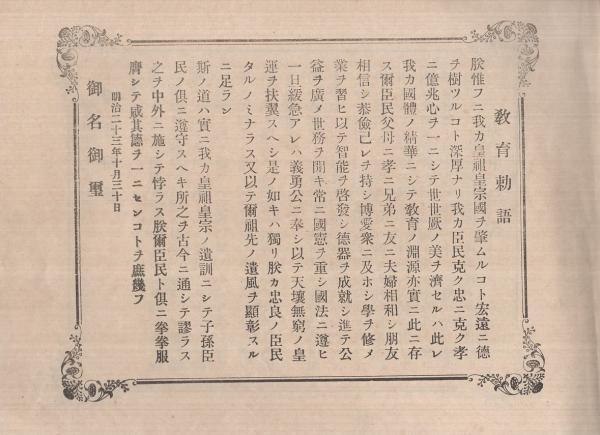 教育勅語
朕惟フニ我カ皇祖皇宗國ヲ肇ムルコト宏遠ニ德
ヲ樹ツルコト深厚ナリ我カ臣民克ク忠ニ克ク孝
ニ億兆心ヲ一ニシテ世世厥ノ美ヲ濟セルハ此レ
我カ國體ノ精華ニシテ教育ノ淵源亦實ニ此ニ存
ス爾臣民父母ニ孝ニ兄弟ニ友ニ夫婦相和シ朋友
相信シ恭儉己レヲ持シ博愛衆ニ及ホシ學ヲ修メ
業ヲ習ヒ以テ智能ヲ啓發シ德器ヲ成就シ進テ公
益ヲ廣メ世務ヲ開キ常ニ國憲ヲ重シ國法ニ遵ヒ
一旦緩急アレハ義勇公ニ奉シ以テ天壤無窮ノ皇
運ヲ扶翼スヘシ是ノ如キハ獨リ朕カ忠良ノ臣民
タルノミナラス又以テ爾祖先ノ遺風ヲ顯彰スル
ニ足ラン
斯ノ道ハ實ニ我カ皇祖皇宗ノ遺訓ニシテ子孫臣
民ノ俱ニ遵守スヘキ所之ヲ古今ニ通シテ謬ラス
之ヲ中外ニ施シテ悖ラス朕爾臣民ト俱ニ拳拳服
膺シテ咸其德ヲ一ニセンコトヲ庶幾フ
明治二十三年十月三十日
御名御璽